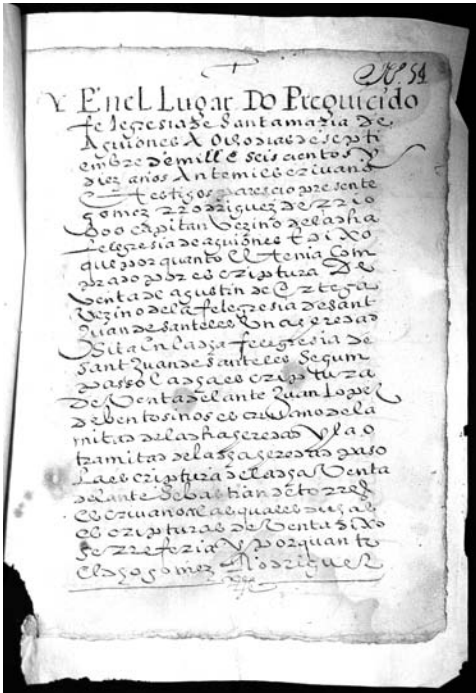 Nº 54
Y En el Lugar Do Preguicido
felegresia de Santamaria de
Aguiones A Ocho dias de septi
embre de mill e seis cientos y
diez años Ante mi escrivano
e testigos parescio presente
gomez rrodriguez de rrio
boo capitan vezino de la dha
felegresia de aguiones e dixo
que por quanto el tenia com
prado por escriptura De
venta de agustin de Ortega
vezino de la felegresia de sant
Juan de santeles Una eredad
Sita En la dha felegresia de
sant Juan de santeles Segum
passo la dha escriptura
De venta del ante Juan Lopez
de bentosinos escrivano de la
mitad de la dha heredad Y la o
tra mitad de la dha heredad paso
La escriptura de la dha Venta
del ante Sebastian de torres
escrivano a las quales dichas
escripturas de Venta dixo
se rreferia Y por quanto
el dho gomez Rodriguez